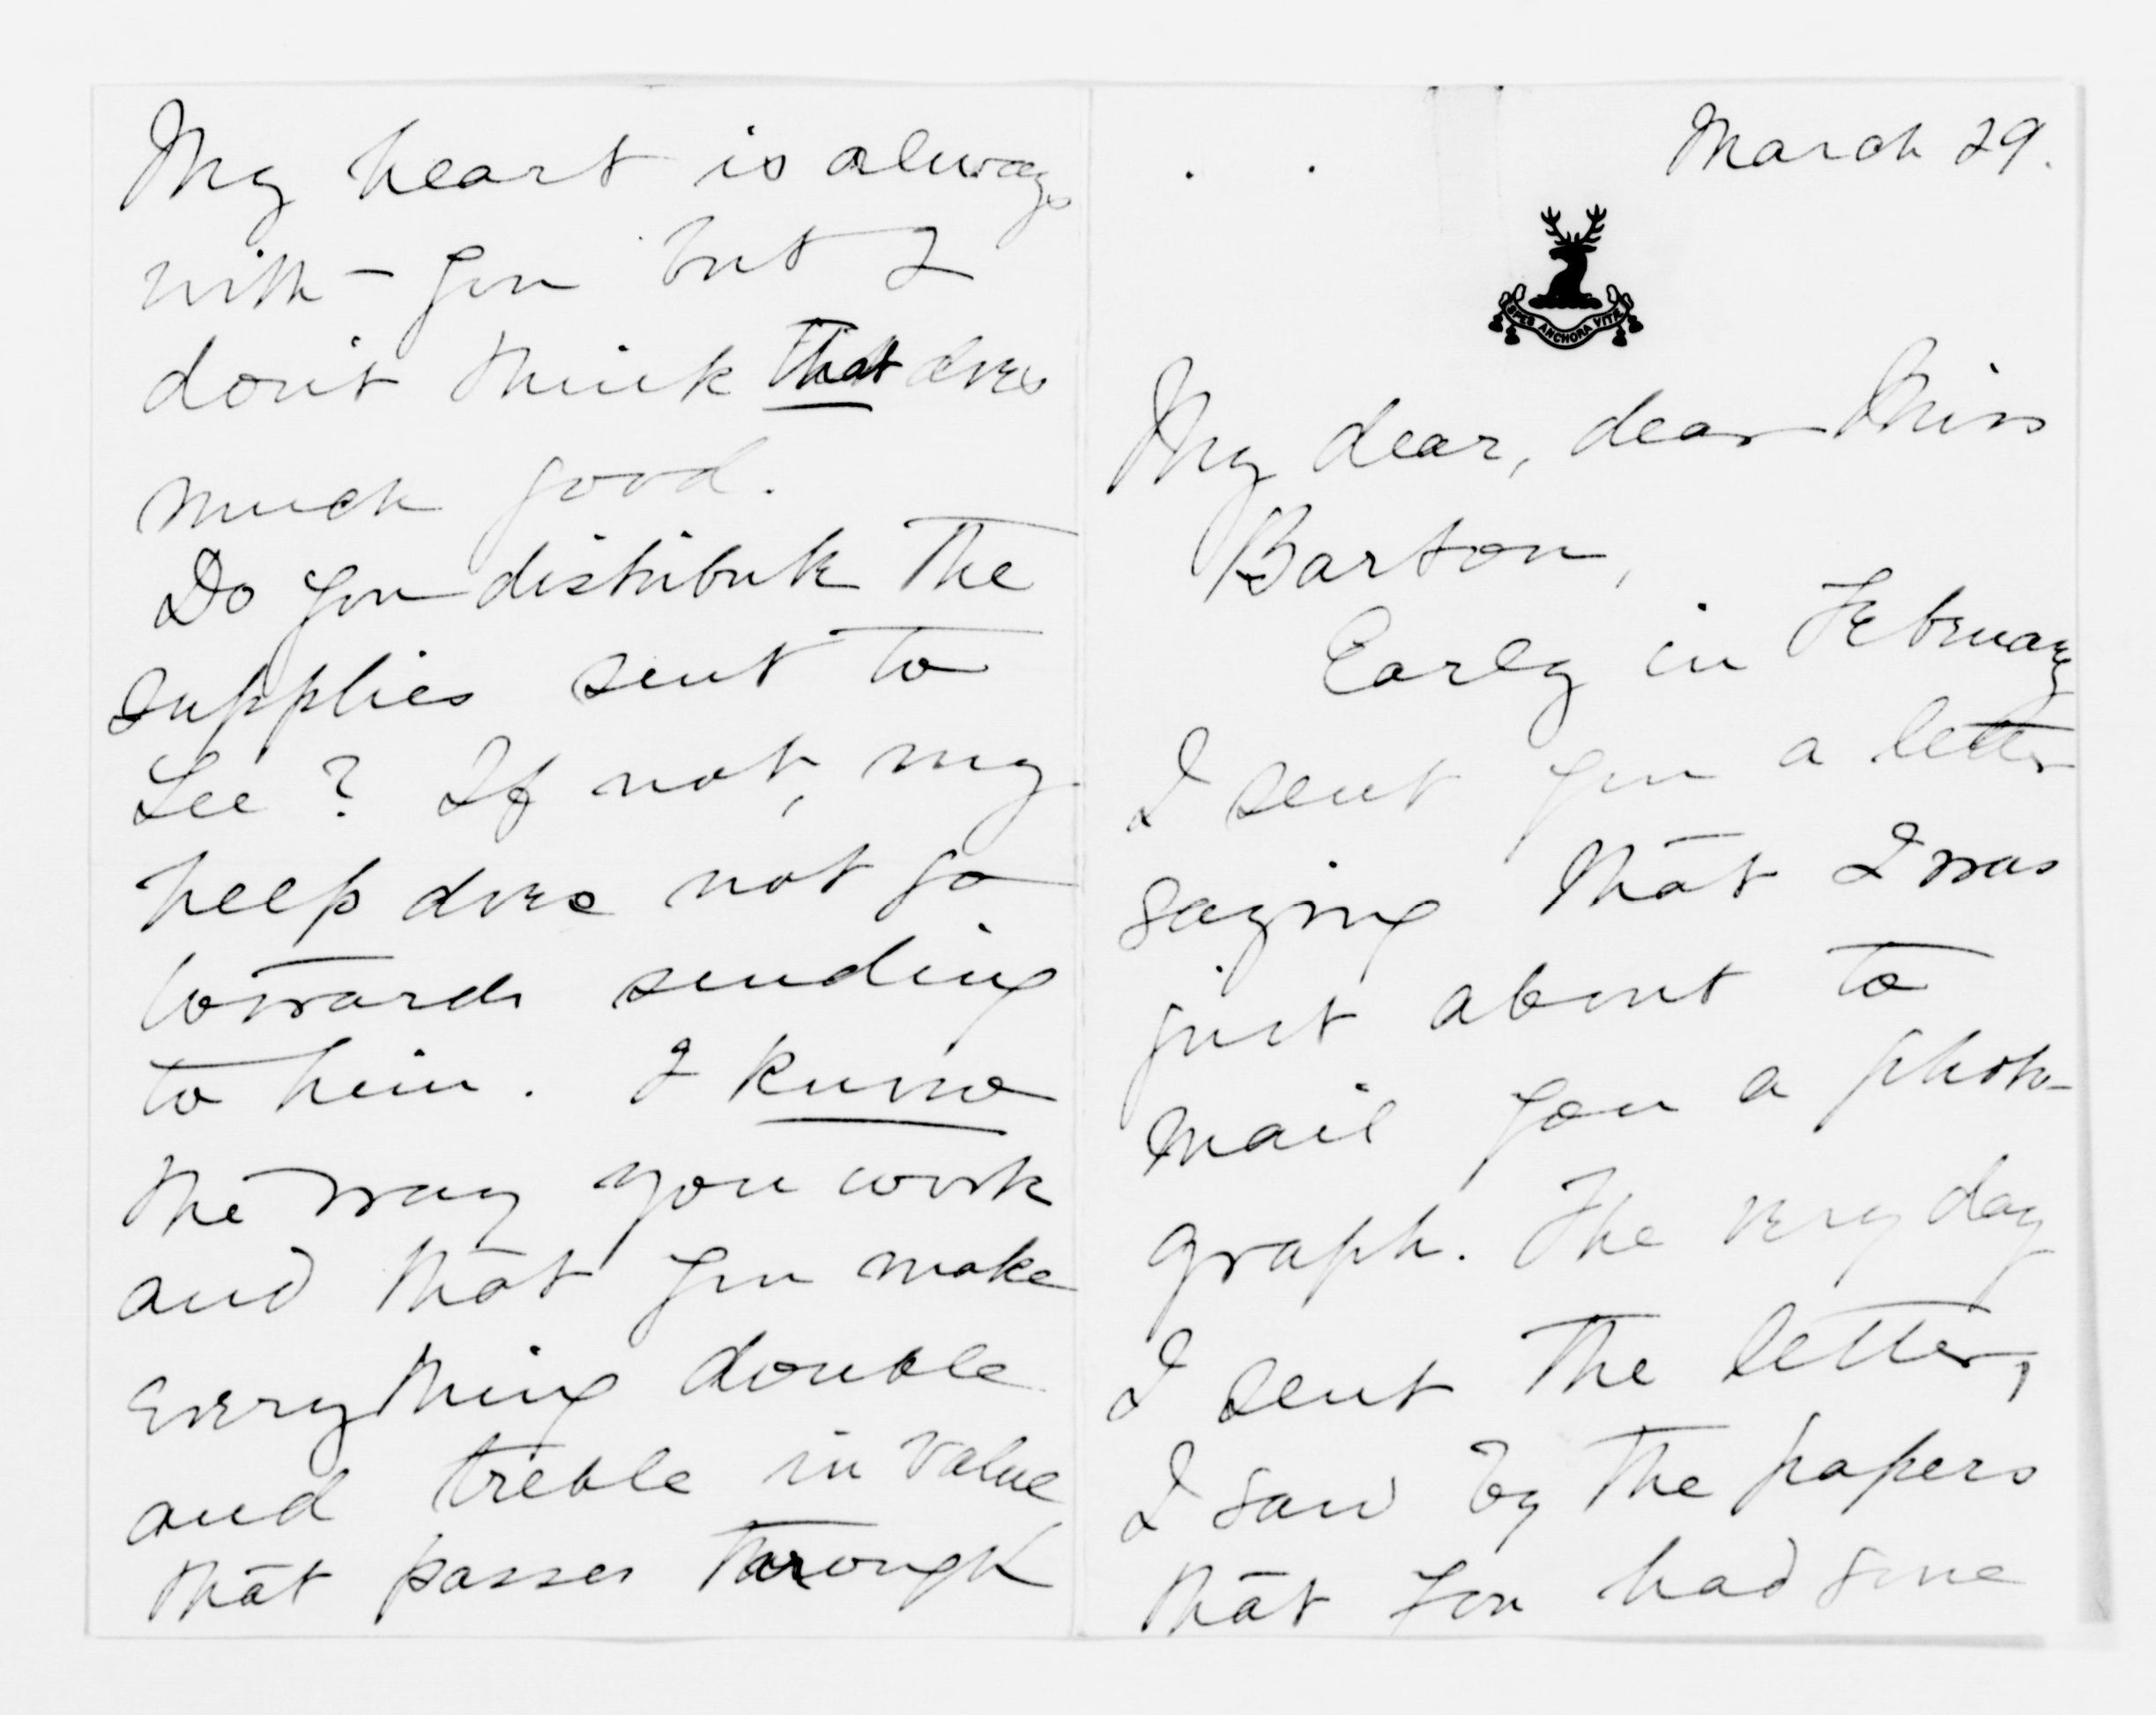 My heart is always
with - you but I
don't think that does
much good.
Do you distribute the
supplies sent to
Lee? If not, my
help does not go
towards sending
to him. I know
the way you work
and that you make
everything double
and treble in value
that passes through
March 29.
SPES ANCHORA VITÆ
My dear, dear Miss
Barton,
Early in February
I sent you a letter
saying that I was
just about to
mail you a photo-
graph. The very day
I sent the letter,
I saw by the papers
that you had gone